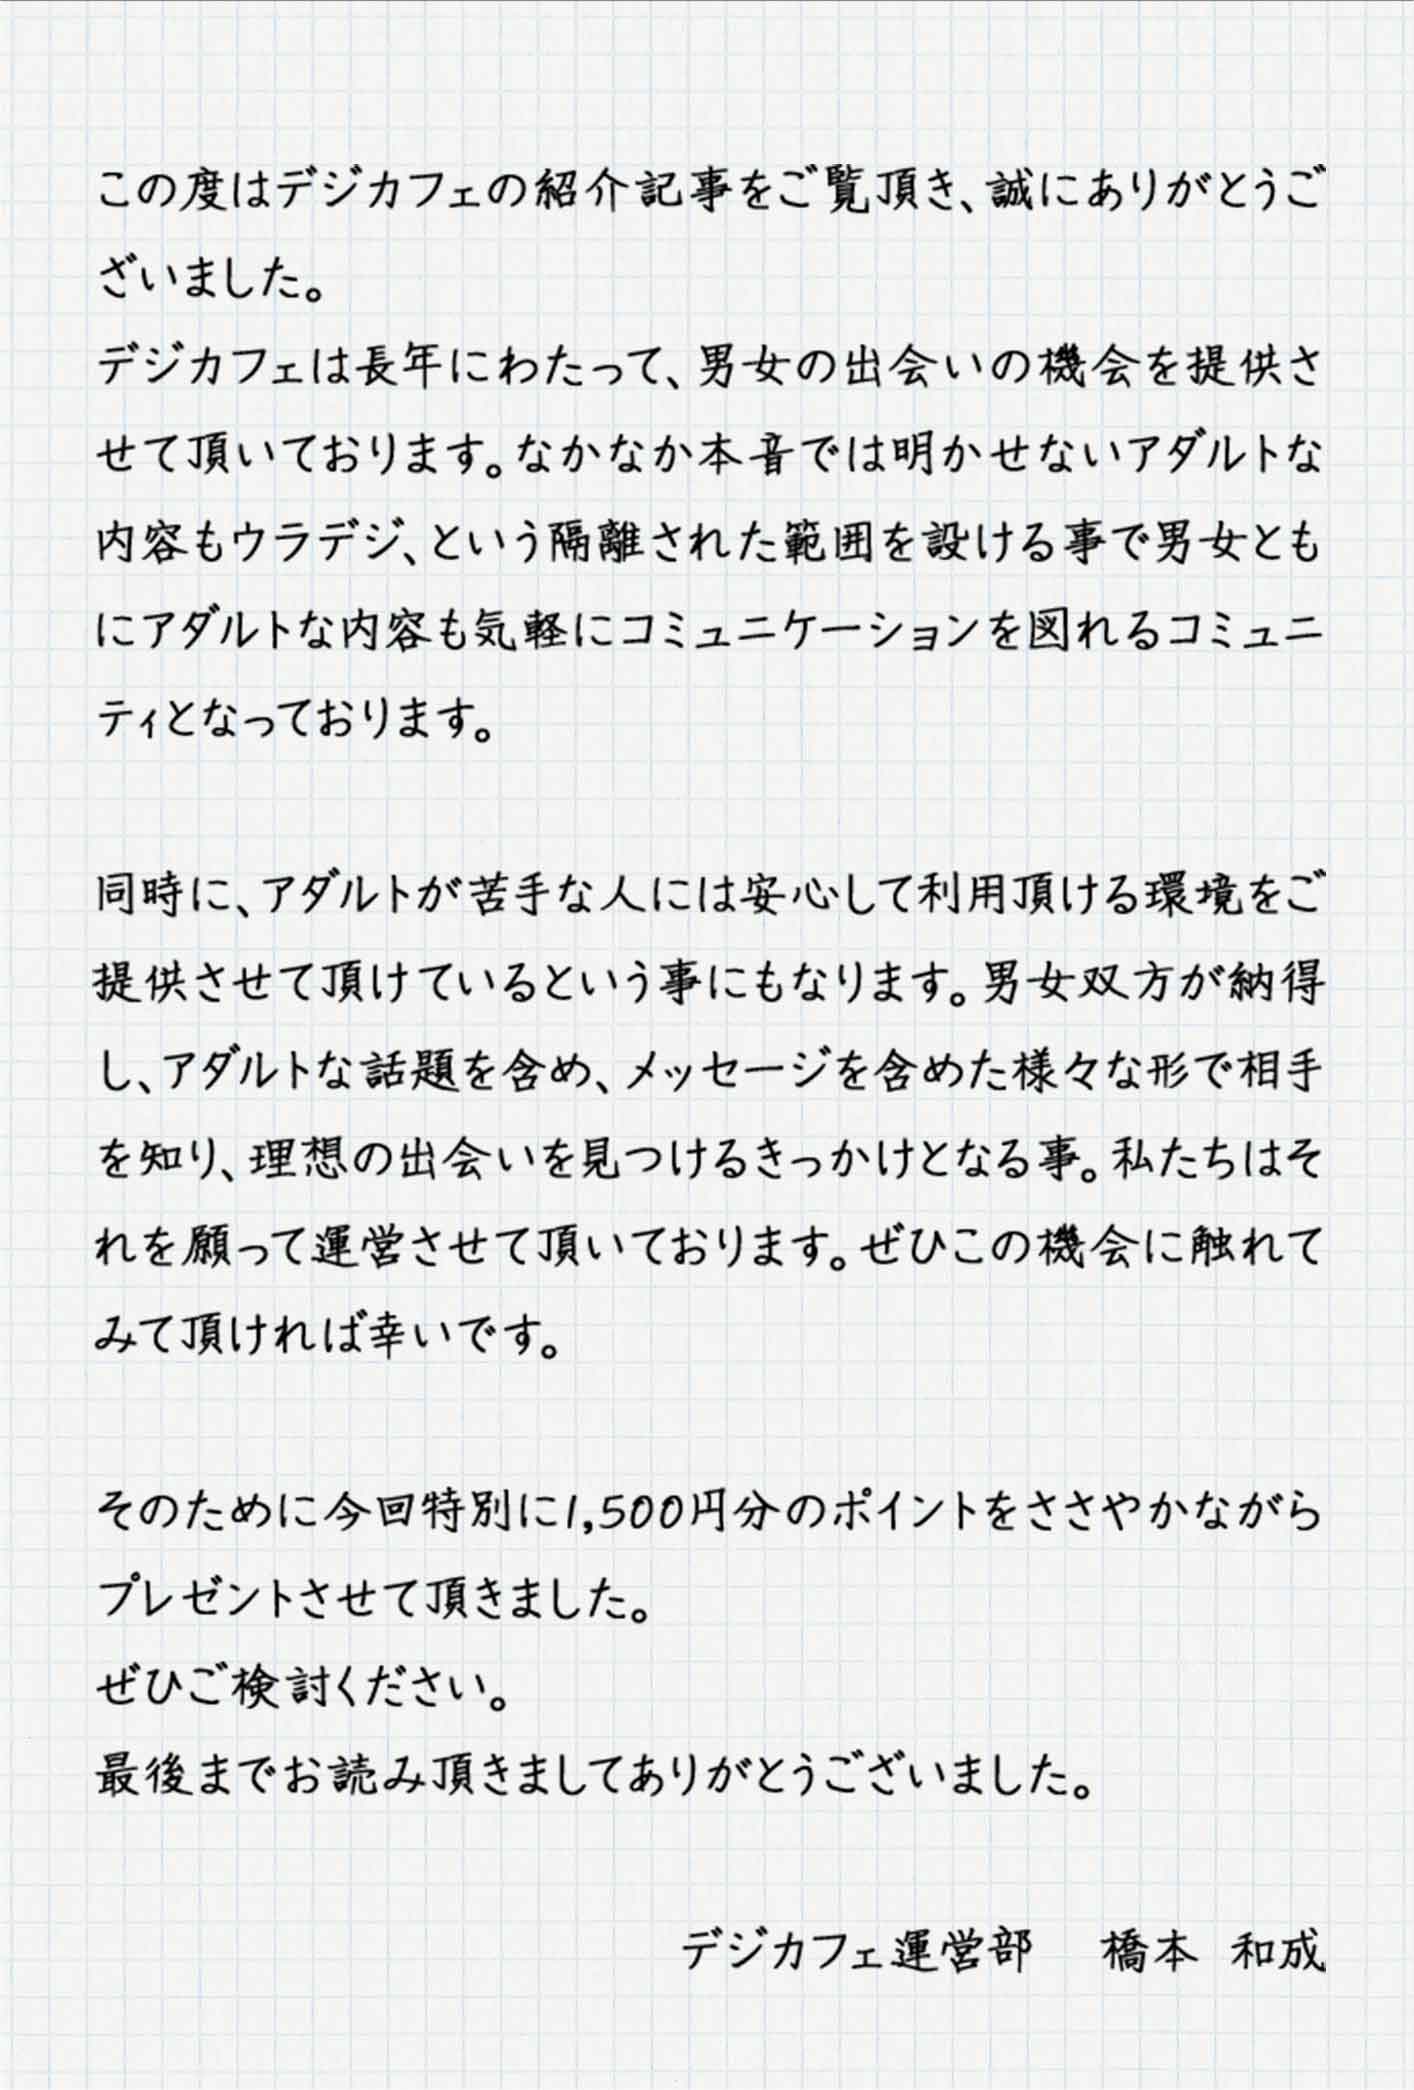 この度はデジカフェの紹介記事をご覧頂き、誠にありがとうご
ざいました。
デジカフェは長年にわたって、男女の出会いの機会を提供さ
せて頂いております。なかなか本音では明かせないアダルトな
内容もウラデジ、という隔離された範囲を設ける事で男女とも
にアダルトな内容も気軽にコミュニケーションを図れるコミュニ
ティとなっております。
同時に、アダルトが苦手な人には安心して利用頂ける環境をご
提供させて頂けているという事にもなります。男女双方が納得
し、アダルトな話題を含め、メッセージを含めた様々な形で相手
を知り、理想の出会いを見つけるきっかけとなる事。私たちはそ
れを願って運営させて頂いております。ぜひこの機会に触れて
みて頂ければ幸いです。
そのために今回特別に1,500円分のポイントをささやかながら
プレゼントさせて頂きました。
ぜひご検討ください。
最後までお読み頂きましてありがとうございました。
デジカフェ運営部　橋本 和成